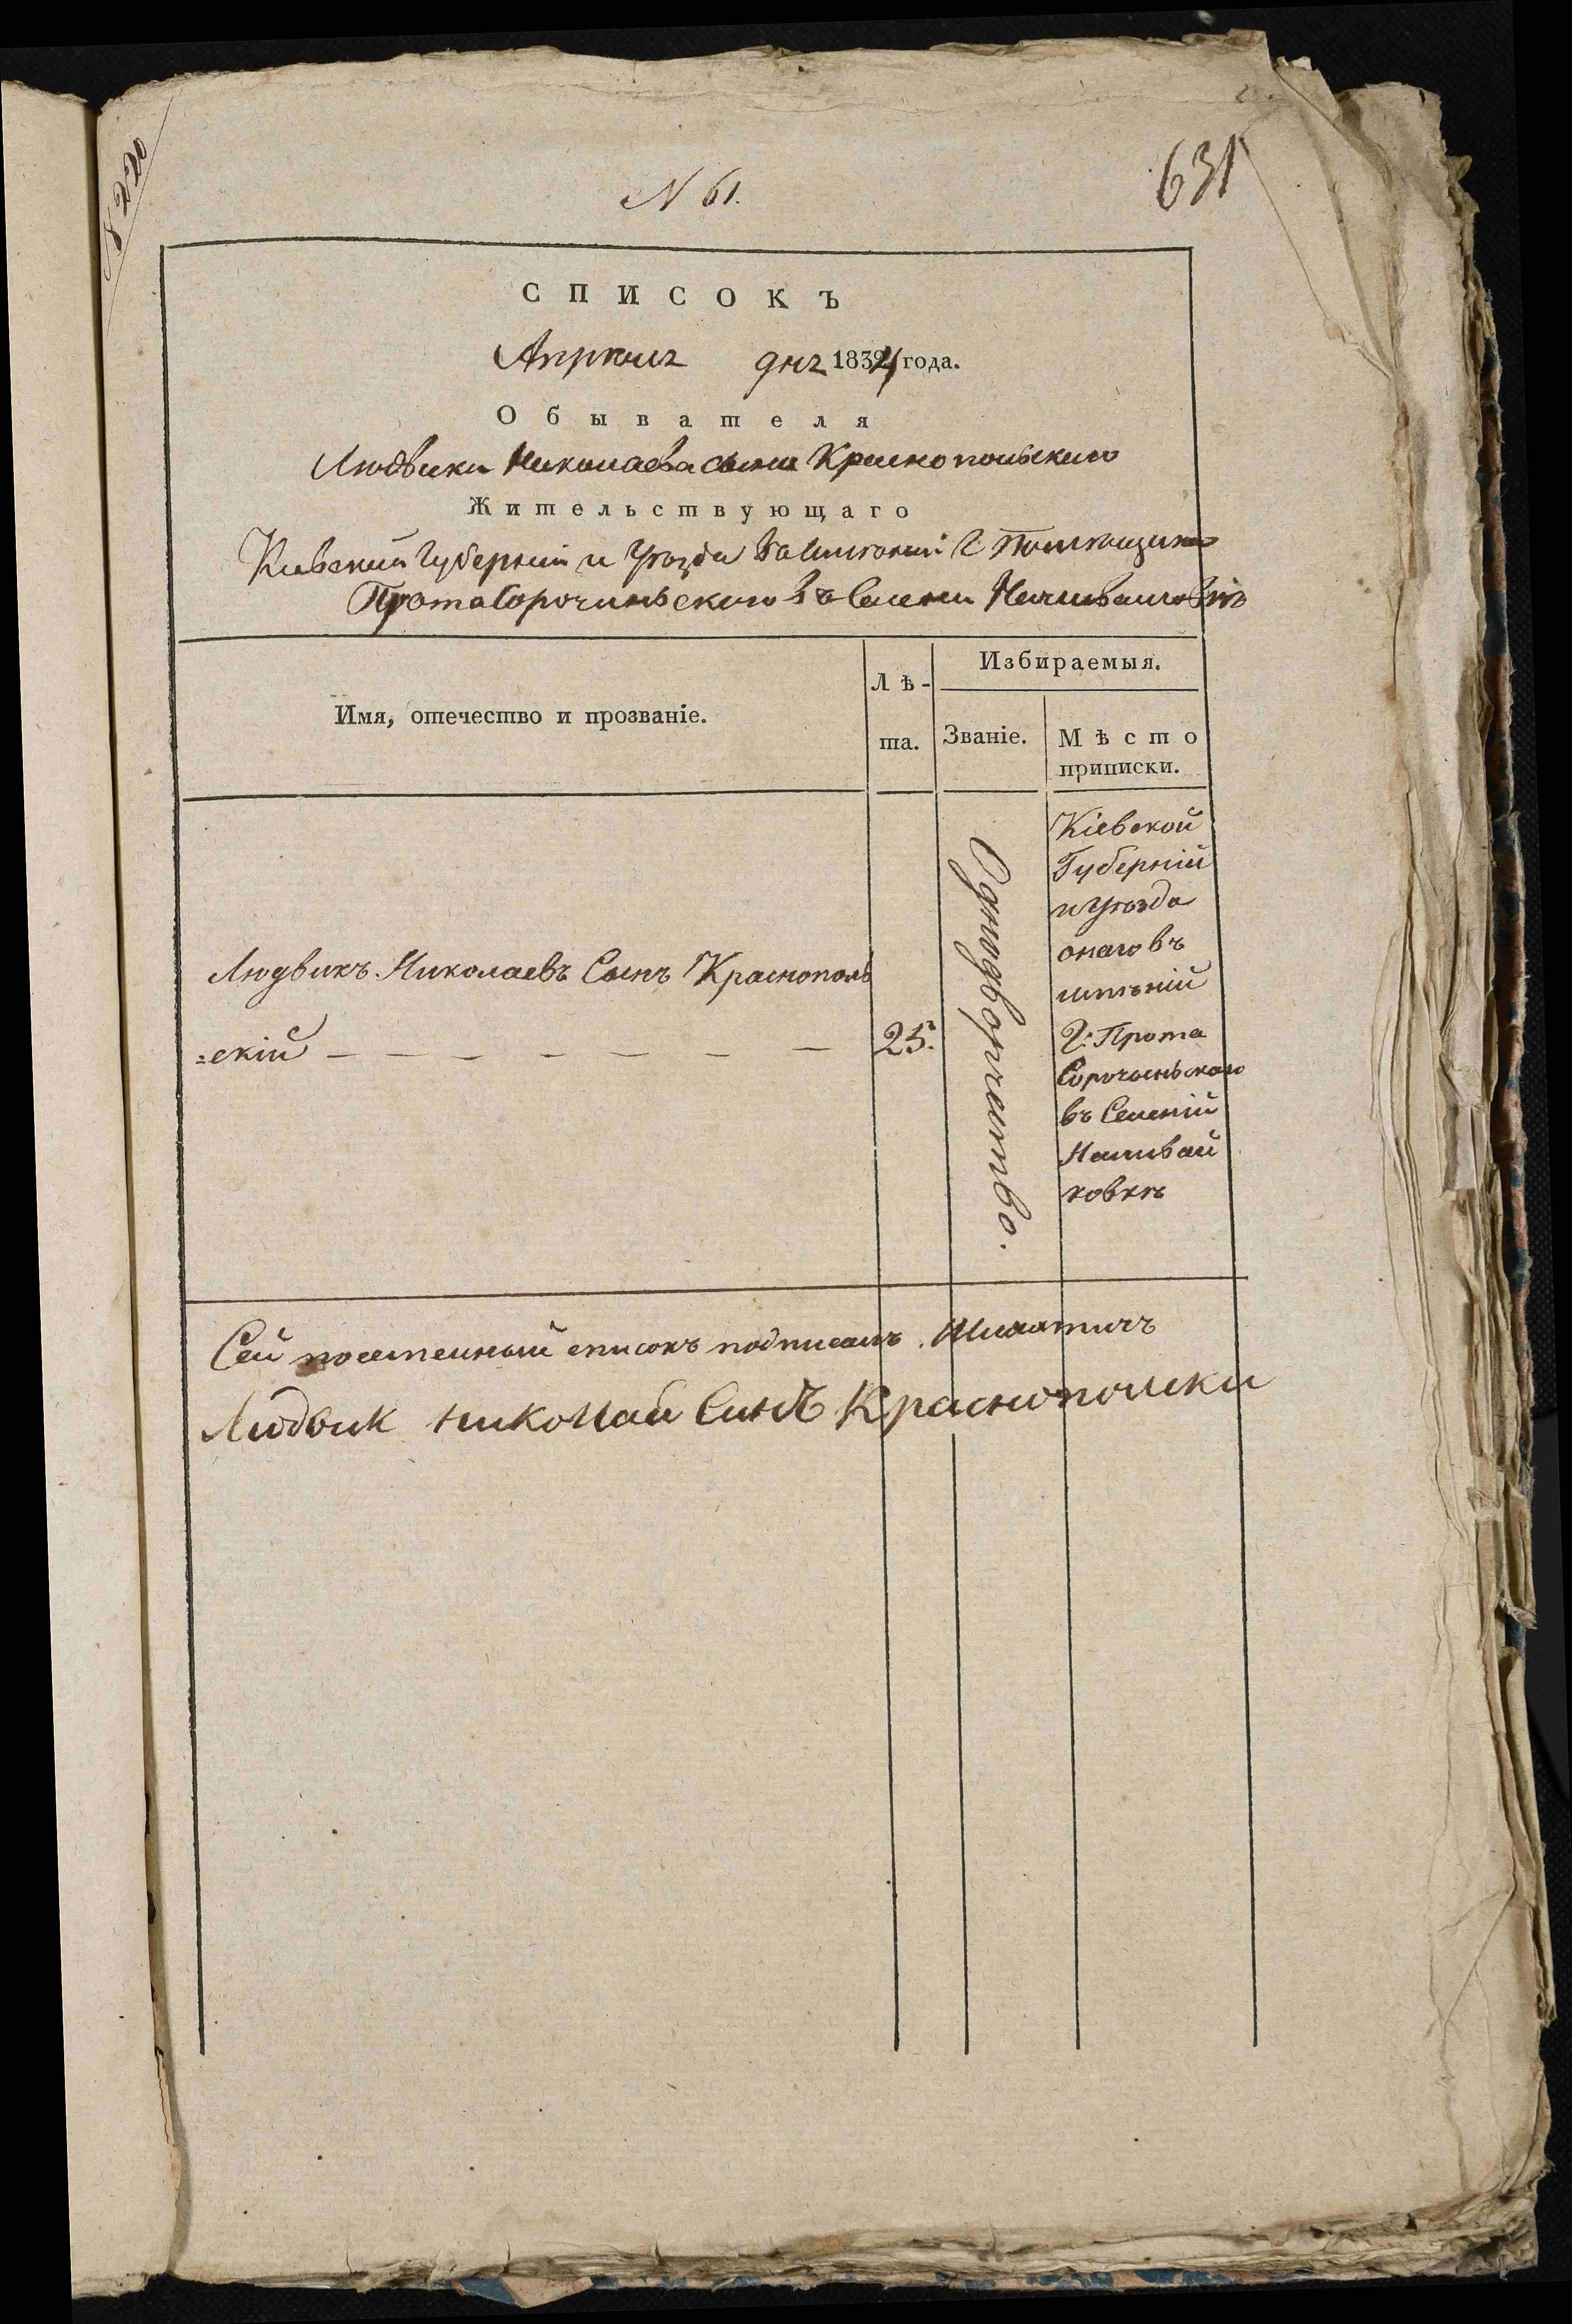 № 220
N 61.
631
СПИСОКЪ
Апреля дня 1834 года.
Обывателя
Людвика Николаева сына Краснопольскаго
Жительствующаго
Киевский Губернии и Уезда Помещика
Прота Сорочинскаго въ Селении
Имя, отечество и прозваніе.
Лѣ-
та.
Избираемыя.
Званіе.
Мѣсто
приписки.
Людвикъ Николаевъ Сынъ Краснополь
=скій — — — — — — —
25.
Однодворчество.
Кіевской
Губерній
и Уѣзда
онаго въ
имѣній
Г: Прота
Сорочинскаго
въ Селеній
Наливай
ковкѣ
Сей посемейный списокъ подписалъ Шляхтичъ
Людвик николай Синъ Краснополски